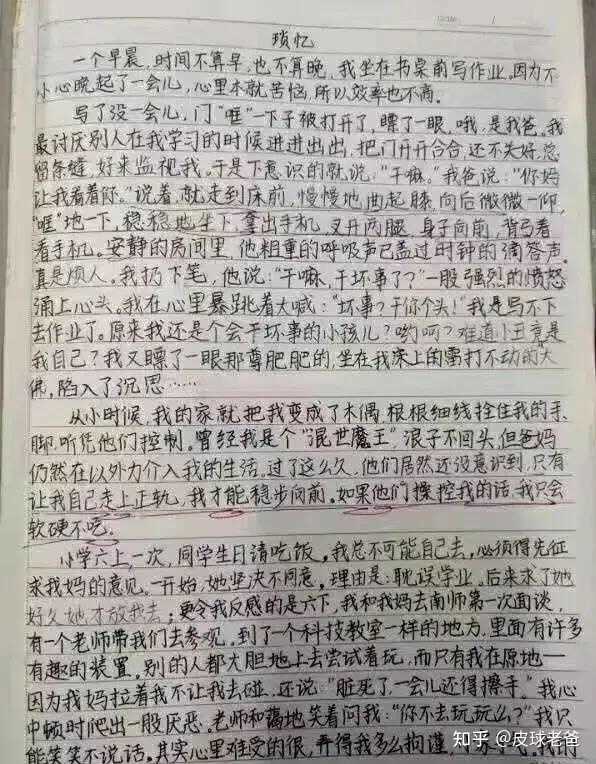 琐忆
一个早晨，时间不算早，也不算晚，我坐在书桌前写作业。因为不
小心晚起了一会儿，心里本就苦恼，所以效率也不高。
写了没一会儿，门“哐”一下子被打开了，瞟了一眼，哦，是我爸。我
最讨厌别人在我学习的时候进进出出，把门开开合合，还不关好，总
留条缝，好来监视我。于是下意识的就说：“干嘛。”我爸说：“你妈
让我看着你。”说着，就走到床前，慢慢地曲起膝，向后微微一仰，
“哐”地一下，稳稳地坐下，拿出手机，叉开两腿，身子向前，背弓着
看手机。安静的房间里，他粗重的呼吸声已盖过时钟的滴答声。
真是烦人。我扔下笔，他说：“干嘛，干坏事了？”一股强烈的愤怒
涌上心头。我在心里暴跳着大喊：“坏事？干你个头！”我是写不下
去作业了。原来我还是个会干坏事的小孩儿？哟呵？难道小丑竟是
我自己？我又瞟了一眼那尊肥肥的，坐在我床上的雷打不动的大
佛，陷入了沉思……
从小时候，我的家就把我变成了木偶，根根细线拴住我的手、
脚，听凭他们控制。曾经我是个“混世魔王”，浪子不回头，但爸妈
仍然在以外力介入我的生活。过了这么久，他们居然还没意识到，只有
让我自己走上正轨，我才能稳步向前。如果他们操控我的话，我只会
软硬不吃。
小学六上，一次，同学生日请吃饭。我总不可能自己去，必须得先征
求我妈的意见。一开始，她坚决不同意。理由是：耽误学业。后来求了她
好久她才放我去；更令我反感的是六下，我和我妈去南师第一次面谈，
有一个老师带我们去参观。到了一个科技教室一样的地方，里面有许多
有趣的装置。别的人都大胆地上去尝试着玩，而只有我在原地——
因为我妈拉着我不让我去碰，还说：“脏死了，一会儿还得擦手。”我心
中顿时爬出一股厌恶。老师和蔼地笑着问我：“你不去玩玩么？”我只
能笑笑不说话。其实心里难受的很，弄得我多么拘谨，
知乎 @皮球老爸